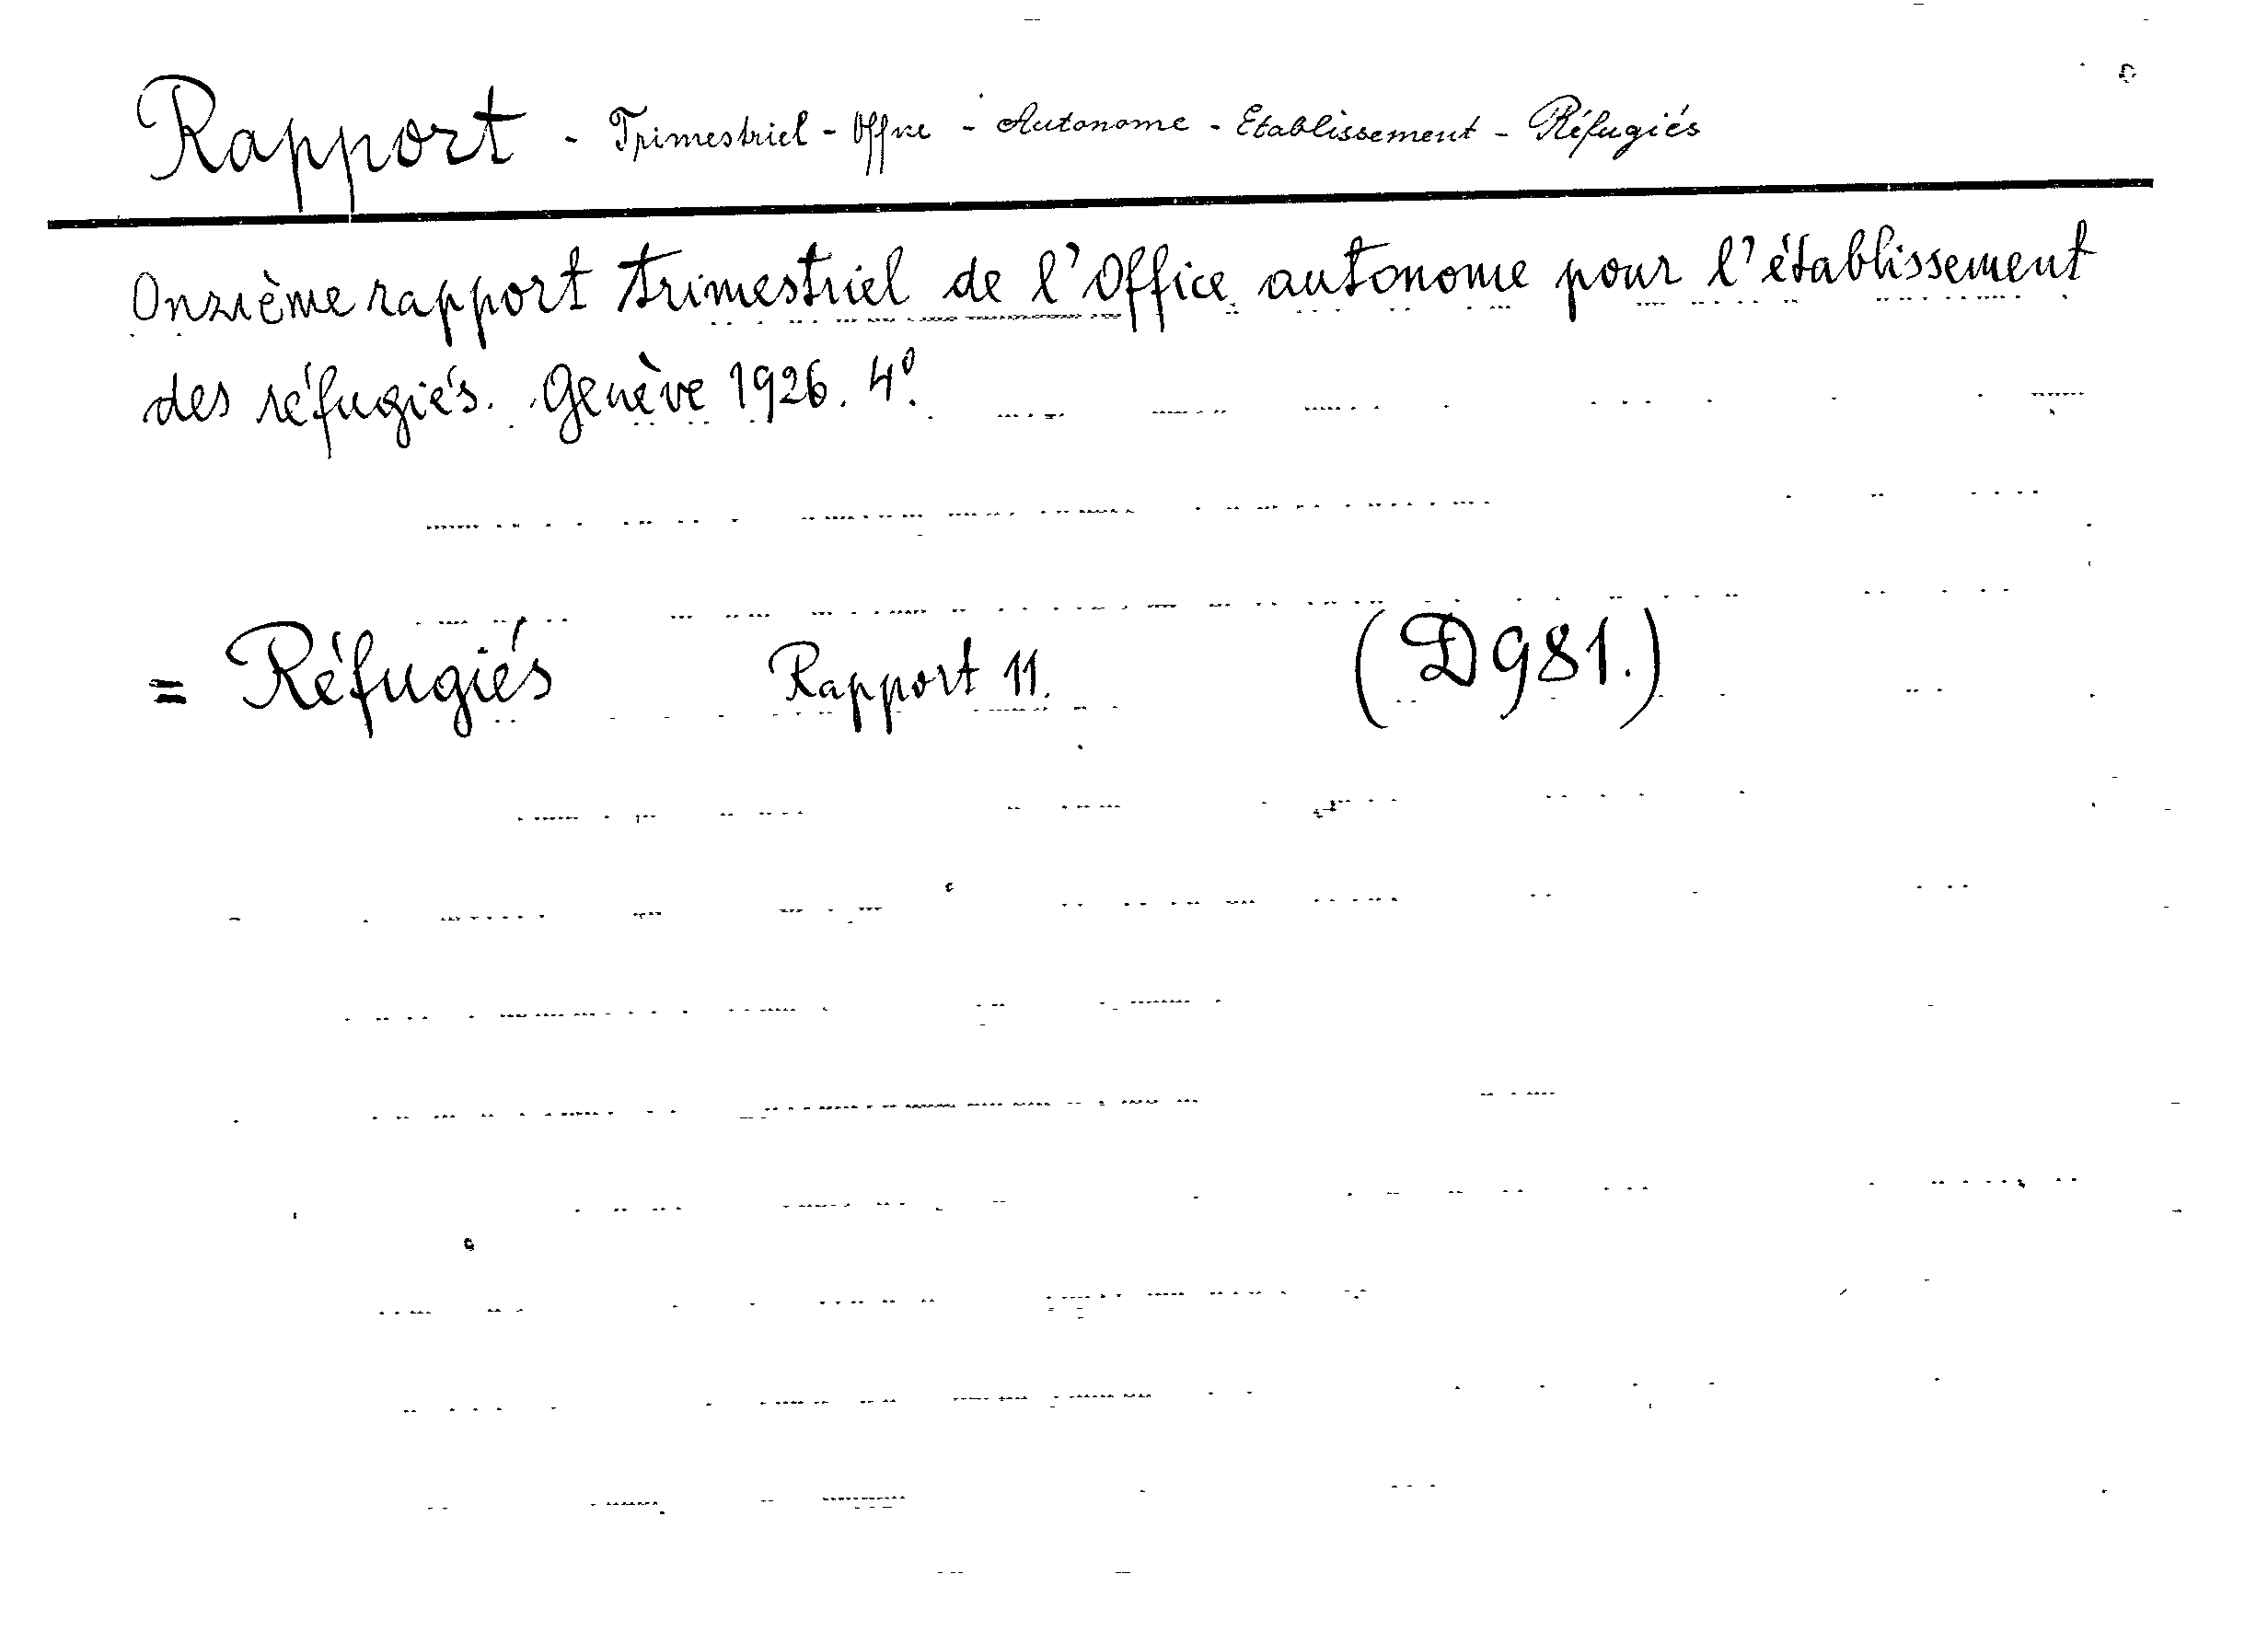 Rapport - Trimestriel - Office - Autonome - Etablissement - Réfugiés
Onzième rapport trimestriel de l'Office autonome pour l'établissement
des réfugiés. Genève 1926. 4°.
= Réfugiés Rapport 11. (D981.)